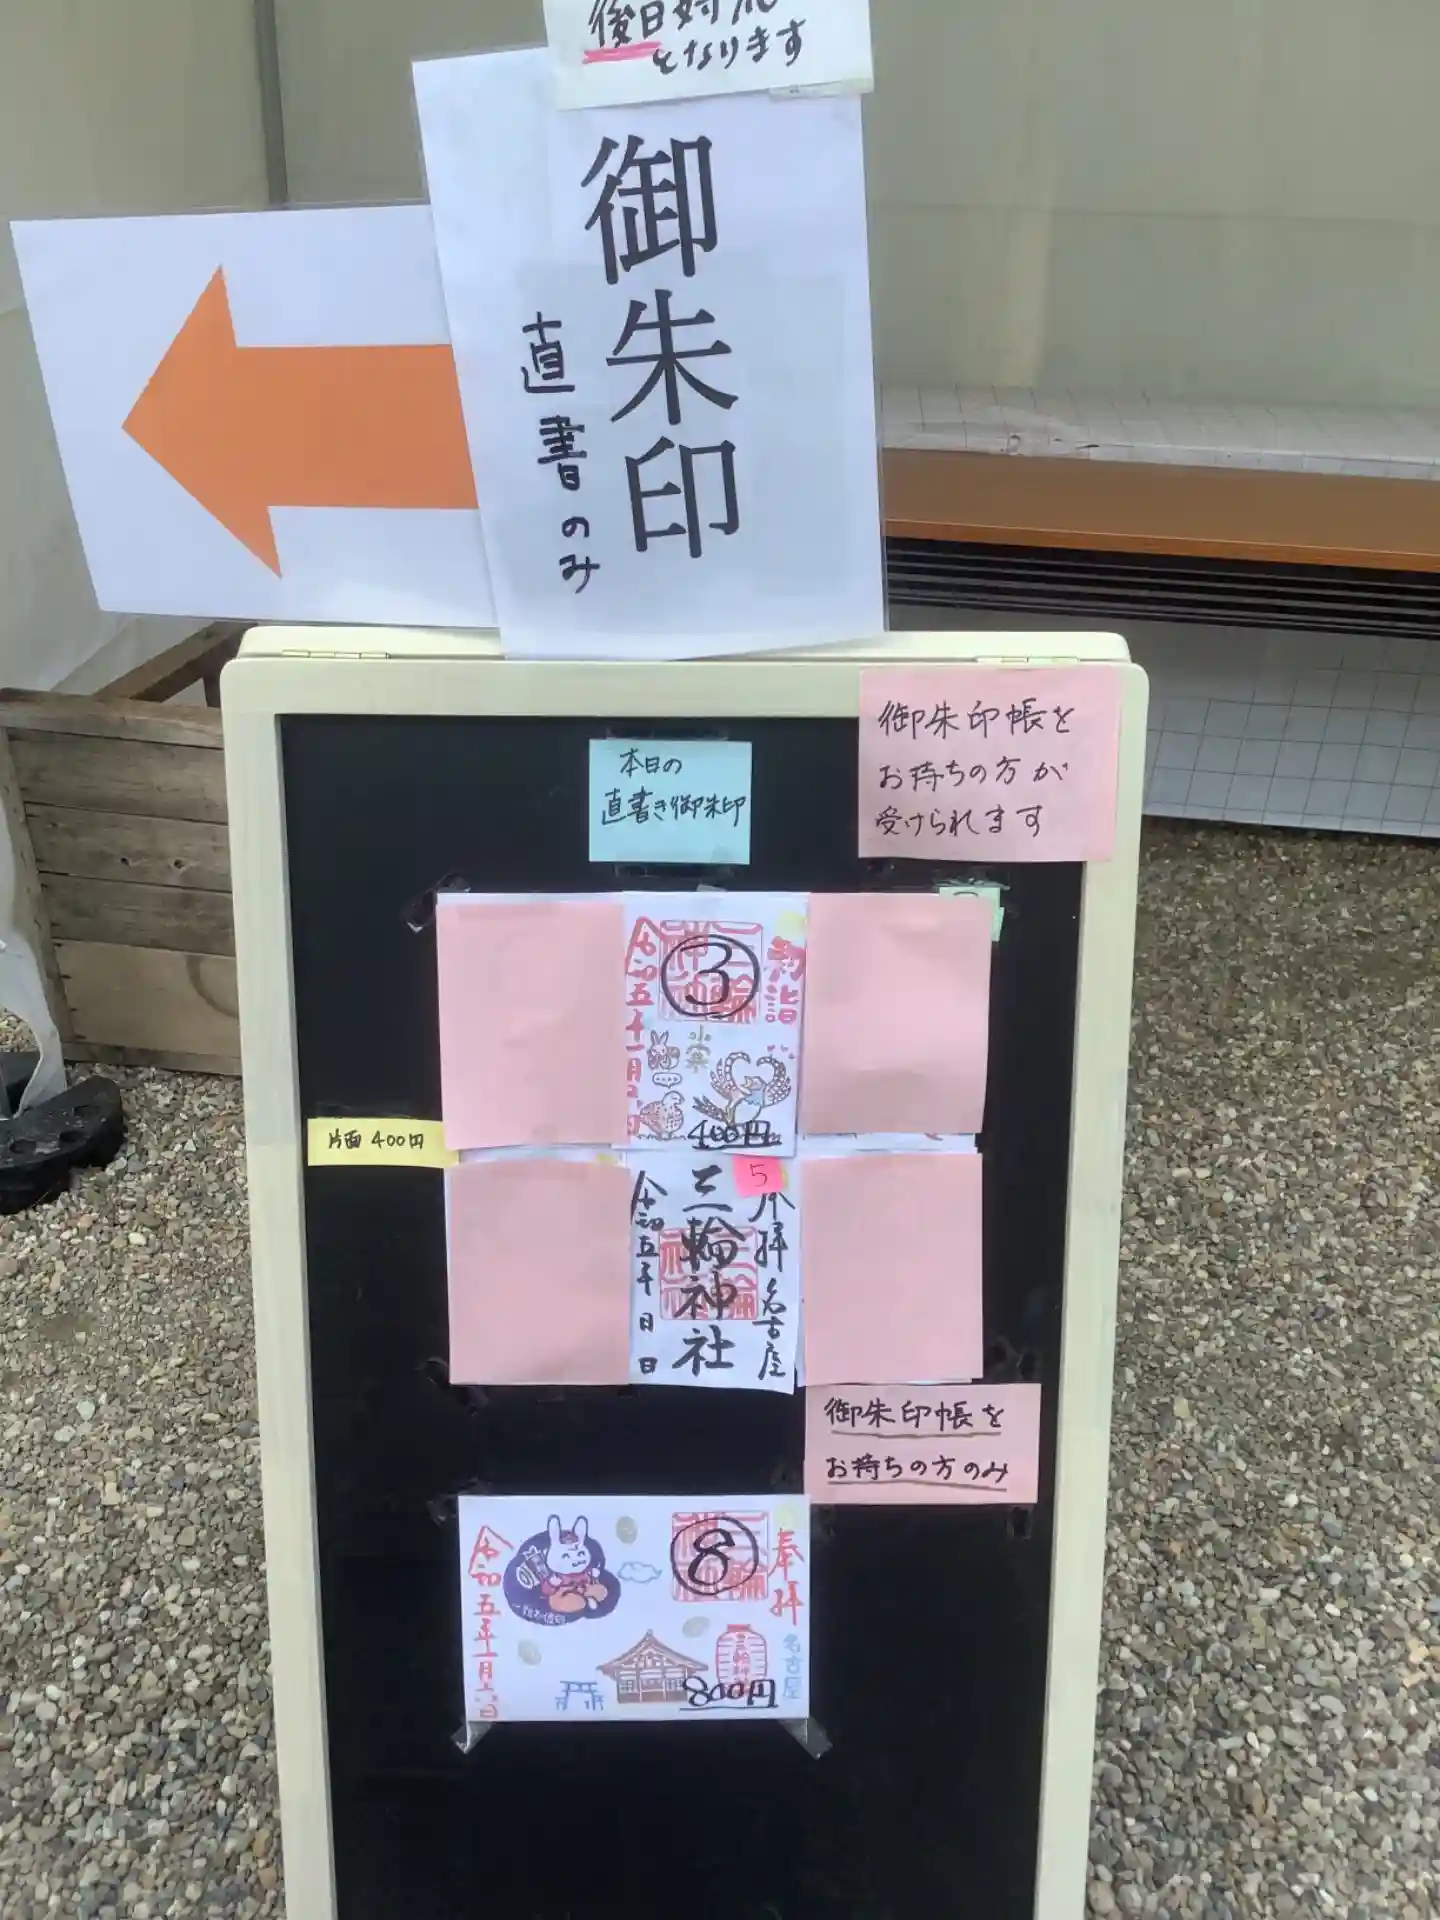 後日対応
となります
御朱印
直書のみ
本日の
直書き御朱印
御朱印帳を
お持ちの方が
受けられます
初詣
三輪神社
③
400円
片面400円
5
奉拝 名古屋
三輪神社
令和五年 月 日
御朱印帳を
お持ちの方のみ
奉拝
名古屋
⑧
三輪神社
800円